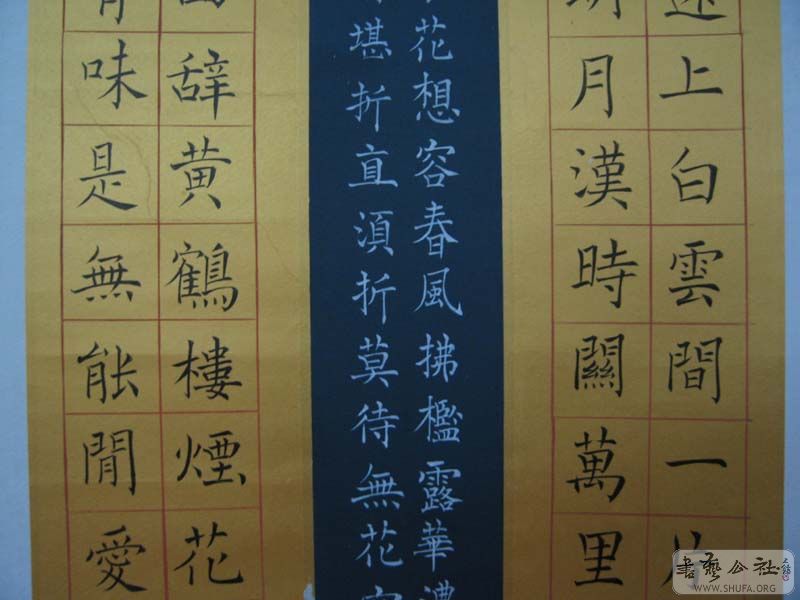 上白雲間一片
明月漢時關萬里
花想容春風拂檻露華濃
堪折直湏折莫待無花
西辭黄鶴樓煙花
有味是無能閒愛
書藝公社
WWW.SHUFA.ORG